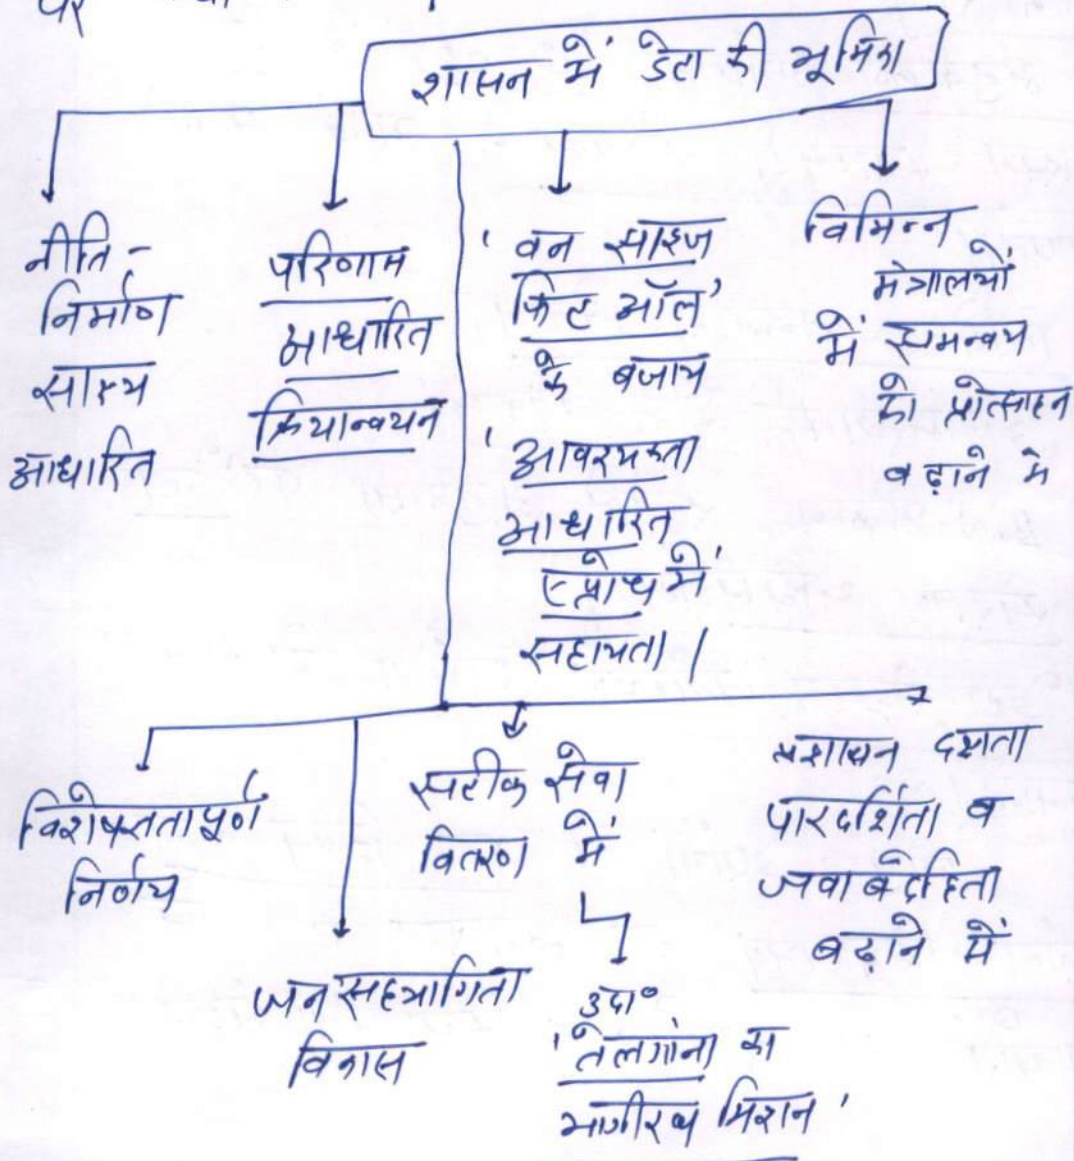 पर
शासन में डेटा की भूमिका
नीति-
निर्माण
साक्ष्य
आधारित
परिणाम
आधारित
क्रियान्वयन
'वन साइज
फिट ऑल'
के बजाय
'आवश्यकता
आधारित
एप्रोच में'
सहायता।
विभिन्न
मंत्रालयों
में समन्वय
को प्रोत्साहन
बढ़ाने में
विशेषज्ञतापूर्ण
निर्णय
जन सहभागिता
विकास
सटीक सेवा
वितरण में
उदा०
'तेलगांना का
भागीरथ मिशन'
प्रशासन दक्षता
पारदर्शिता व
जवाबदेहिता
बढ़ाने में